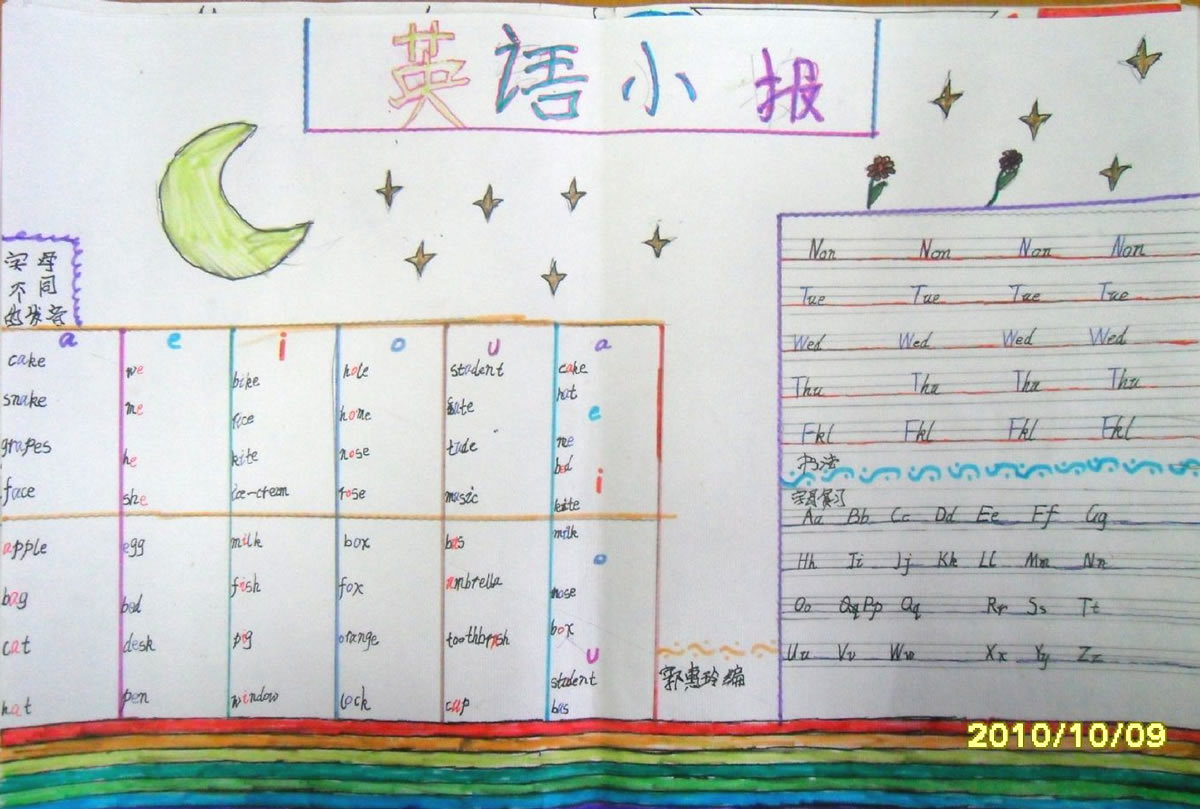 英语小报
字母
不同
的发音
a e i o u a
cake we bike hole student cake
hat
snake me home
e
grapes he kite nose tude me
bed
face she ice-cream rose music i
kite
apple egg milk box bus milk
o
bag bed fish fox umbrella nose
cat desk pig orange toothbrush box
u
student
hat pen window lock cap bus
郭惠玲编
Non Non Non Non
Tue Tue Tue Tue
Wed Wed Wed Wed
Thu Thu Thu Thu
Fkl Fkl Fkl Fkl
书法
字母复习
Aa Bb Cc Dd Ee Ff Gg
Hh Ii Jj Kk Ll Mm Nn
Oo Pp Qq Rr Ss Tt
Uu Vv Ww Xx Yy Zz
2010/10/09